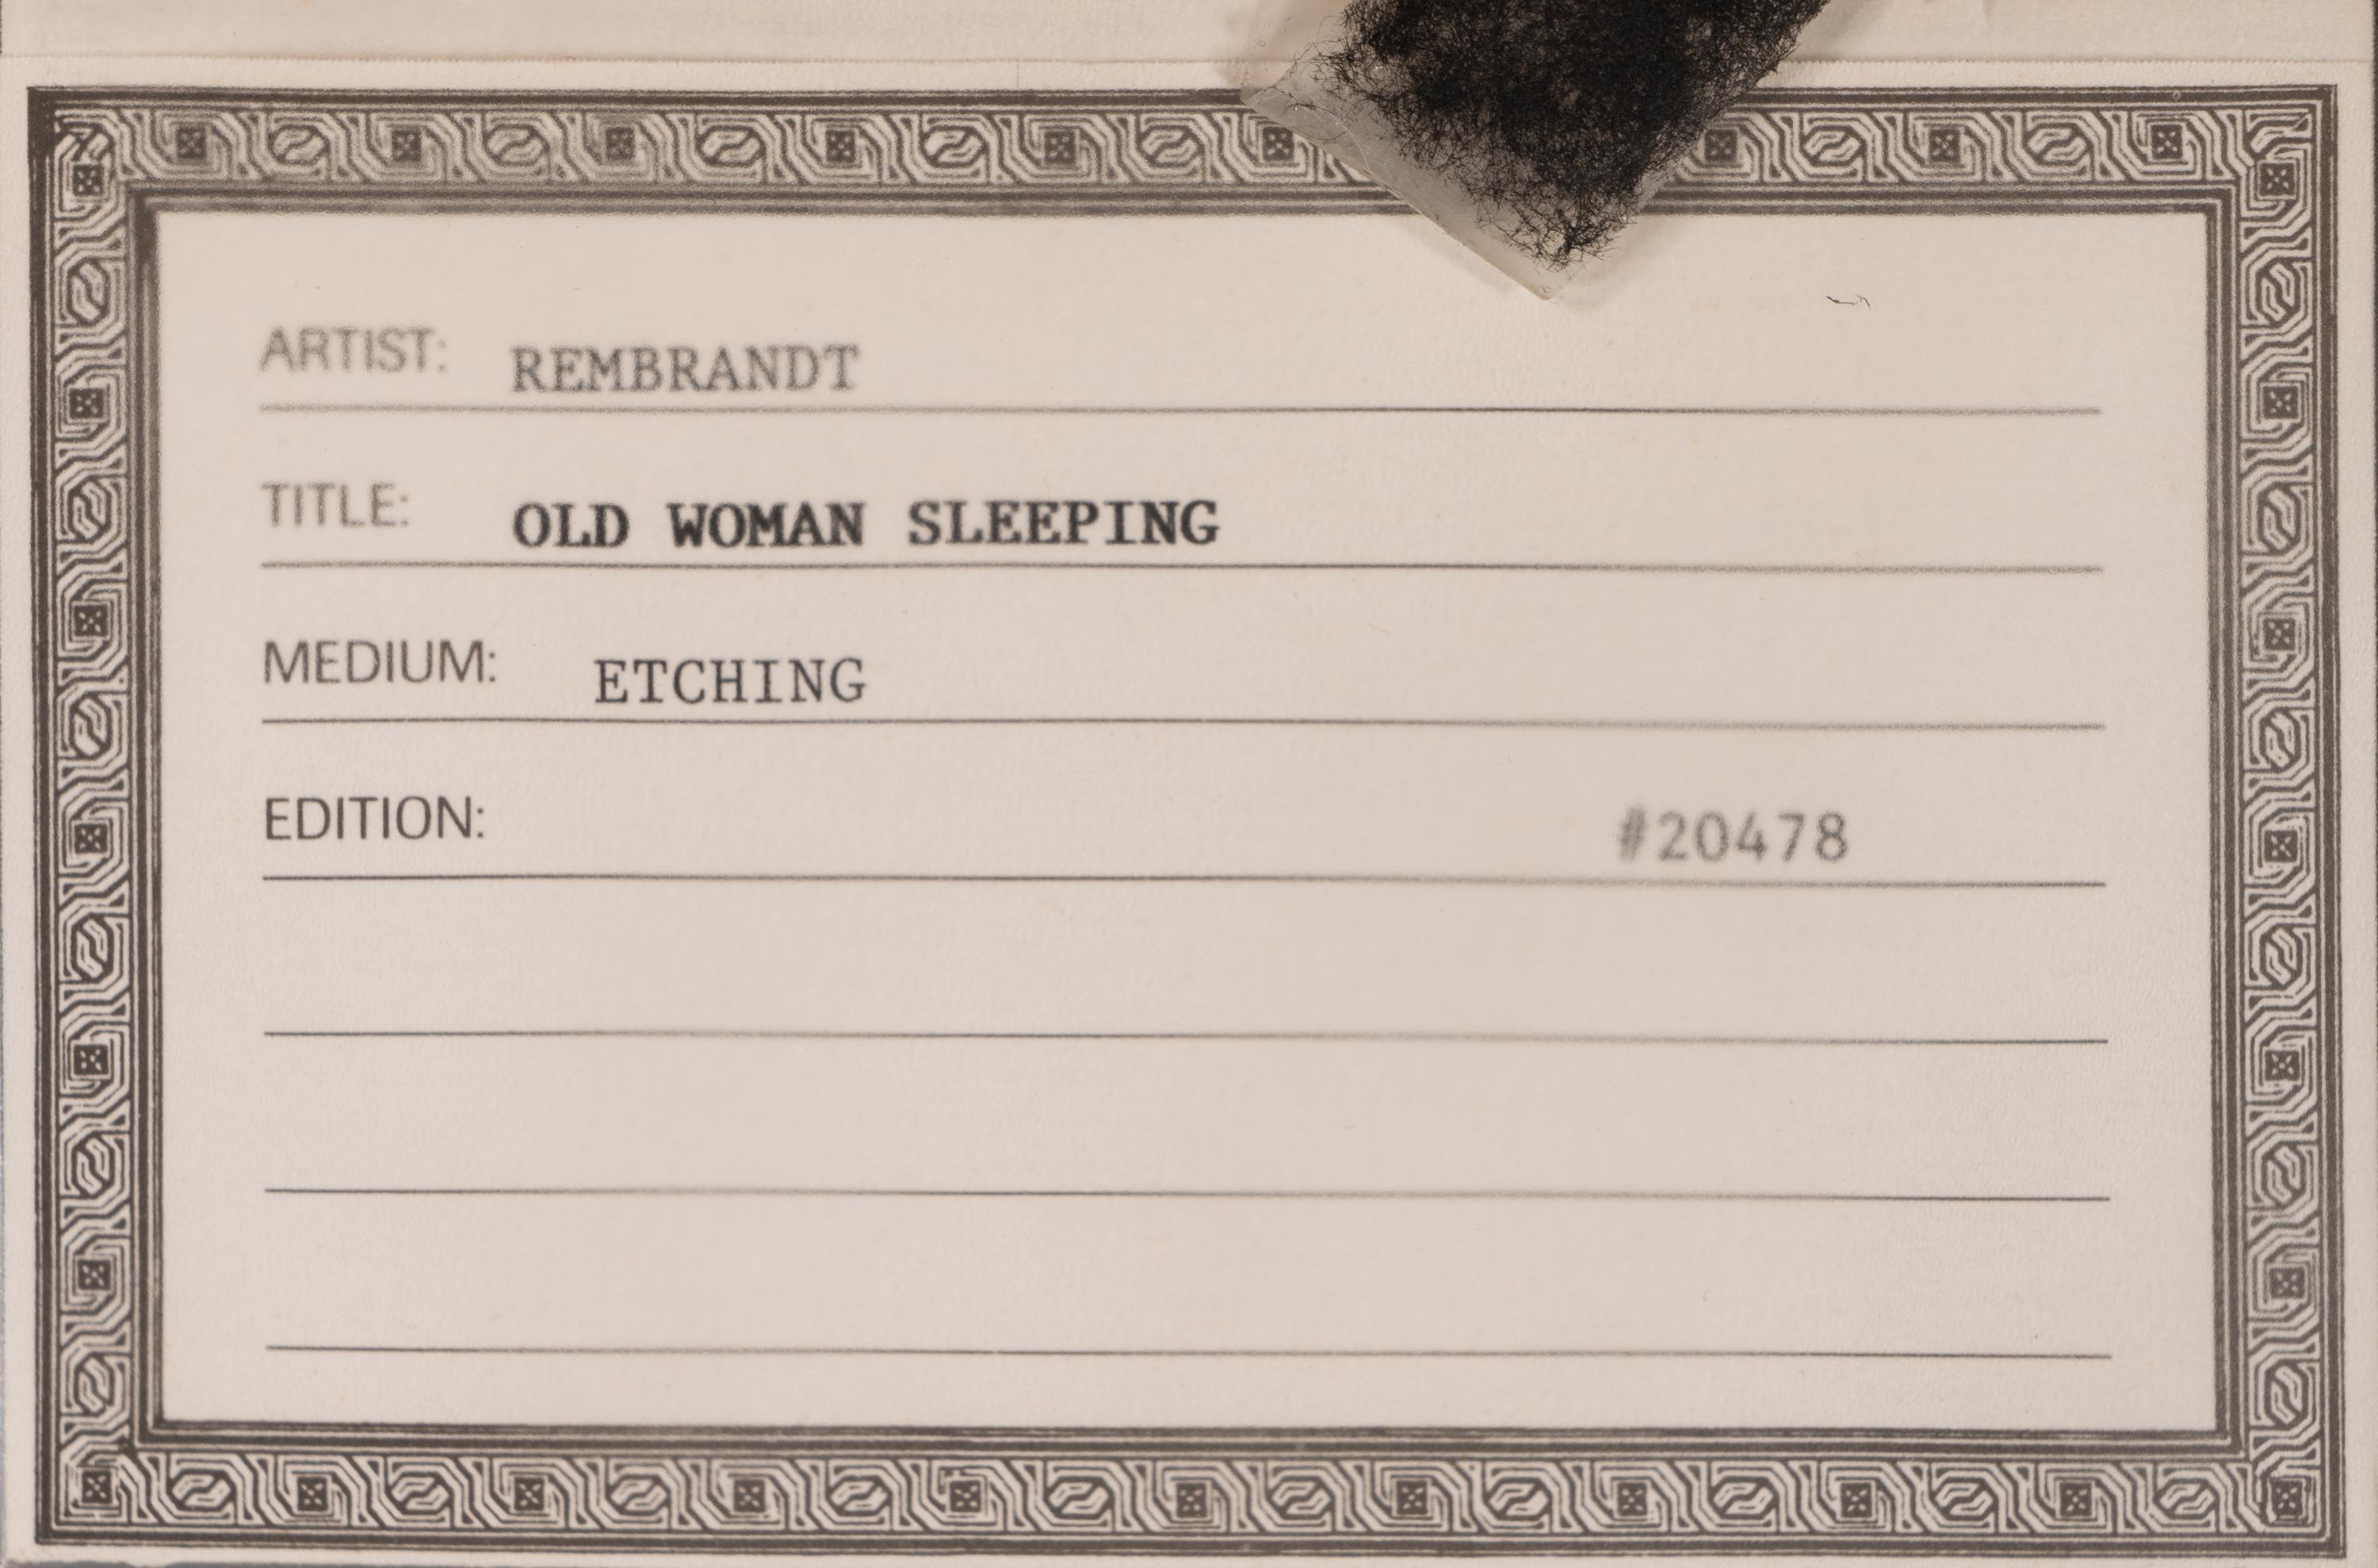 ARTIST: REMBRANDT
TITLE: OLD WOMAN SLEEPING
MEDIUM: ETCHING
EDITION: #20478